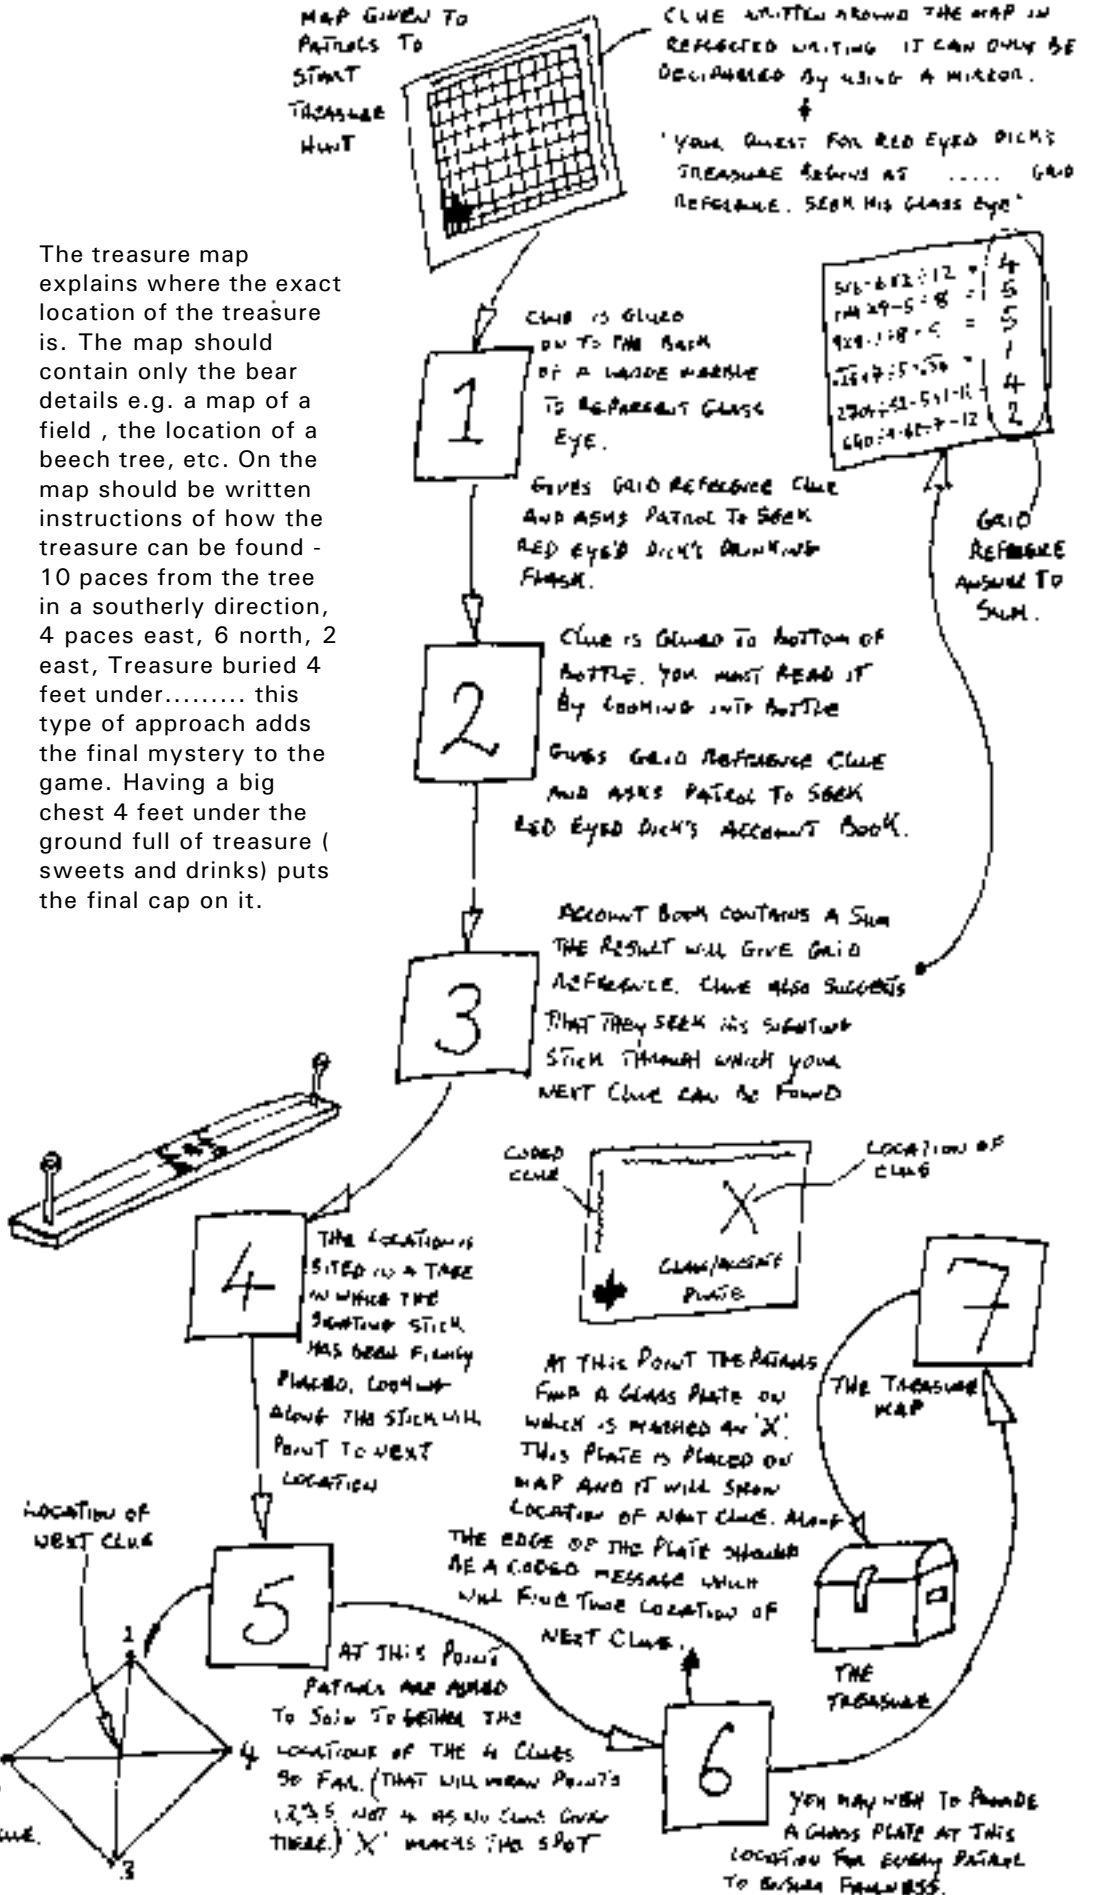 MAP GIVEN TO
PATROLS TO
START
TREASURE
HUNT
CLUE WRITTEN AROUND THE MAP IN
REFLECTED WRITING IT CAN ONLY BE
DECIPHERED BY USING A MIRROR.
'YOUR QUEST FOR RED EYED DICK'S
TREASURE BEGINS AT ..... GRID
REFERENCE. SEEK HIS GLASS EYE'
The treasure map
explains where the exact
location of the treasure
is. The map should
contain only the bear
details e.g. a map of a
field , the location of a
beech tree, etc. On the
map should be written
instructions of how the
treasure can be found -
10 paces from the tree
in a southerly direction,
4 paces east, 6 north, 2
east, Treasure buried 4
feet under......... this
type of approach adds
the final mystery to the
game. Having a big
chest 4 feet under the
ground full of treasure (
sweets and drinks) puts
the final cap on it.
4
5
5
1
4
2
GRID
REFERENCE
ANSWER TO
SUM.
1
CLUE IS GLUED
ON TO THE BACK
OF A LARGE MARBLE
TO REPRESENT GLASS
EYE.
GIVES GRID REFERENCE CLUE
AND ASKS PATROL TO SEEK
RED EYE'D DICK'S DRINKING
FLASK.
2
CLUE IS GLUED TO BOTTOM OF
BOTTLE. YOU MUST READ IT
BY LOOKING INTO BOTTLE
GIVES GRID REFERENCE CLUE
AND ASKS PATROL TO SEEK
RED EYED DICK'S ACCOUNT BOOK.
3
ACCOUNT BOOK CONTAINS A SUM
THE RESULT WILL GIVE GRID
REFERENCE. CLUE ALSO SUGGESTS
THAT THEY SEEK HIS SIGHTING
STICK THROUGH WHICH YOUR
NEXT CLUE CAN BE FOUND
4
THE LOCATION IS
SITED IN A TREE
IN WHICH THE
SIGHTING STICK
HAS BEEN FIRMLY
PLACED, LOOKING
ALONG THE STICK WILL
POINT TO NEXT
LOCATION
CODED
CLUE
X
LOCATION OF
CLUE
PLATE
AT THIS POINT THE PATROLS
FIND A GLASS PLATE ON
WHICH IS MARKED AN 'X'.
THIS PLATE IS PLACED ON
MAP AND IT WILL SHOW
LOCATION OF NEXT CLUE. ALONG
THE EDGE OF THE PLATE SHOULD
BE A CODED MESSAGE WHICH
WILL FINE TUNE LOCATION OF
NEXT CLUE.
7
THE TREASURE
MAP
THE
TREASURE
5
AT THIS POINT
PATROLS ARE ASKED
TO JOIN TOGETHER THE
LOCATIONS OF THE 4 CLUES
SO FAR. (THAT WILL MEAN POINTS
1,2,3,5, NOT 4 AS NO CLUE GIVEN
THERE.) 'X' MARKS THE SPOT
LOCATION OF
NEXT CLUE
1
4
3
6
YOU MAY WISH TO PROVIDE
A GLASS PLATE AT THIS
LOCATION FOR EVERY PATROL
TO ENSURE FAIRNESS.